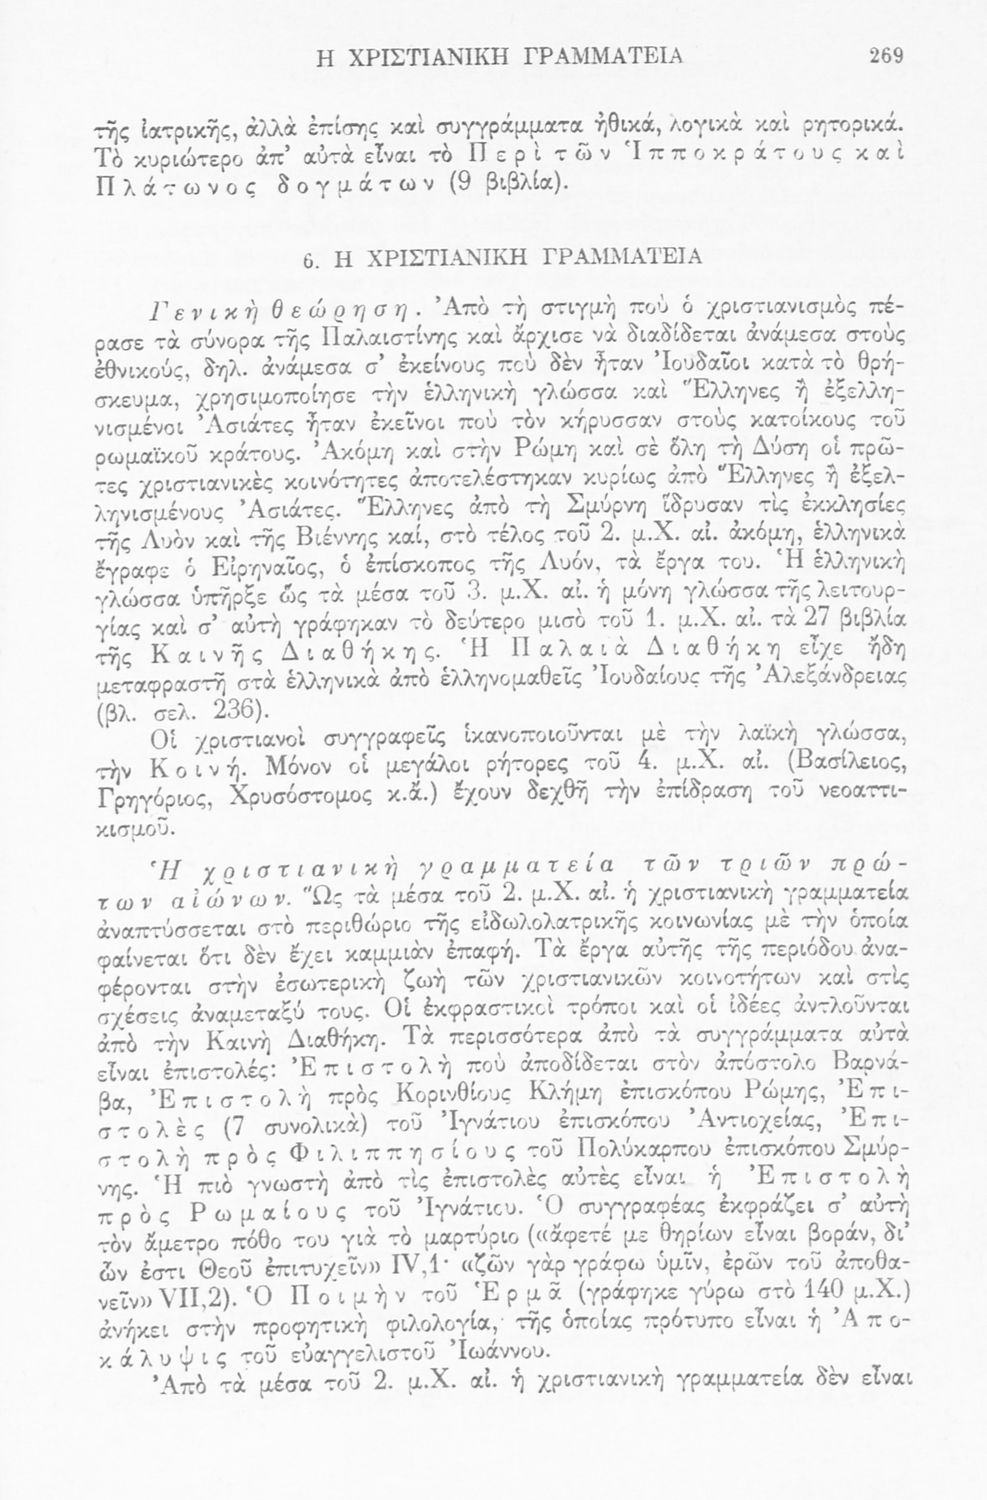 Η ΧΡΙΣΤΙΑΝΙΚΗ ΓΡΑΜΜΑΤΕΙΑ 269
τῆς ἰατρικῆς, ἀλλὰ ἐπίσης καὶ συγγράμματα ἠθικά, λογικὰ καὶ ρητορικά.
Τὸ κυριώτερο ἀπ᾿ αὐτὰ εἶναι τὸ Περὶ τῶν Ἱπποκράτους καὶ
Πλάτωνος δογμάτων (9 βιβλία).
6. Η ΧΡΙΣΤΙΑΝΙΚΗ ΓΡΑΜΜΑΤΕΙΑ
Γενικὴ θεώρηση. Ἀπὸ τὴ στιγμὴ ποὺ ὁ χριστιανισμὸς πέ-
ρασε τὰ σύνορα τῆς Παλαιστίνης καὶ ἄρχισε νὰ διαδίδεται ἀνάμεσα στοὺς
ἐθνικούς, δηλ. ἀνάμεσα σ᾿ ἐκείνους ποὺ δὲν ἦταν Ἰουδαῖοι κατὰ τὸ θρή-
σκευμα, χρησιμοποίησε τὴν ἑλληνικὴ γλώσσα καὶ Ἕλληνες ἢ ἐξελλη-
νισμένοι Ἀσιάτες ἦταν ἐκεῖνοι ποὺ τὸν κήρυσσαν στοὺς κατοίκους τοῦ
ρωμαϊκοῦ κράτους. Ἀκόμη καὶ στὴν Ρώμη καὶ σὲ ὅλη τὴ Δύση οἱ πρῶ-
τες χριστιανικὲς κοινότητες ἀποτελέστηκαν κυρίως ἀπὸ Ἕλληνες ἢ ἐξελ-
ληνισμένους Ἀσιάτες. Ἕλληνες ἀπὸ τὴ Σμύρνη ἵδρυσαν τὶς ἐκκλησίες
τῆς Λυὸν καὶ τῆς Βιέννης καί, στὸ τέλος τοῦ 2. μ.Χ. αἰ. ἀκόμη, ἑλληνικὰ
ἔγραφε ὁ Εἰρηναῖος, ὁ ἐπίσκοπος τῆς Λυόν, τὰ ἔργα του. Ἡ ἑλληνικὴ
γλώσσα ὑπῆρξε ὣς τὰ μέσα τοῦ 3. μ.Χ. αἰ. ἡ μόνη γλώσσα τῆς λειτουρ-
γίας καὶ σ᾿ αὐτὴ γράφηκαν τὸ δεύτερο μισὸ τοῦ 1. μ.Χ. αἰ. τὰ 27 βιβλία
τῆς Καινῆς Διαθήκης. Ἡ Παλαιὰ Διαθήκη εἶχε ἤδη
μεταφραστῆ στὰ ἑλληνικὰ ἀπὸ ἑλληνομαθεῖς Ἰουδαίους τῆς Ἀλεξάνδρειας
(βλ. σελ. 236).
Οἱ χριστιανοὶ συγγραφεῖς ἱκανοποιοῦνται μὲ τὴν λαϊκὴ γλώσσα,
τὴν Κοινή. Μόνον οἱ μεγάλοι ρήτορες τοῦ 4. μ.Χ. αἰ. (Βασίλειος,
Γρηγόριος, Χρυσόστομος κ.ἄ.) ἔχουν δεχθῆ τὴν ἐπίδραση τοῦ νεοαττι-
κισμοῦ.
Ἡ χριστιανικὴ γραμματεία τῶν τριῶν πρώ-
των αἰώνων. Ὣς τὰ μέσα τοῦ 2. μ.Χ. αἰ. ἡ χριστιανικὴ γραμματεία
ἀναπτύσσεται στὸ περιθώριο τῆς εἰδωλολατρικῆς κοινωνίας μὲ τὴν ὁποία
φαίνεται ὅτι δὲν ἔχει καμμιὰν ἐπαφή. Τὰ ἔργα αὐτῆς τῆς περιόδου ἀνα-
φέρονται στὴν ἐσωτερικὴ ζωὴ τῶν χριστιανικῶν κοινοτήτων καὶ στὶς
σχέσεις ἀναμεταξύ τους. Οἱ ἐκφραστικοὶ τρόποι καὶ οἱ ἰδέες ἀντλοῦνται
ἀπὸ τὴν Καινὴ Διαθήκη. Τὰ περισσότερα ἀπὸ τὰ συγγράμματα αὐτὰ
εἶναι ἐπιστολές: Ἐπιστολὴ ποὺ ἀποδίδεται στὸν ἀπόστολο Βαρνά-
βα, Ἐπιστολὴ πρὸς Κορινθίους Κλήμη ἐπισκόπου Ρώμης, Ἐπι-
στολὲς (7 συνολικὰ) τοῦ Ἰγνάτιου ἐπισκόπου Ἀντιοχείας, Ἐπι-
στολὴ πρὸς Φιλιππησίους τοῦ Πολύκαρπου ἐπισκόπου Σμύρ-
νης. Ἡ πιὸ γνωστὴ ἀπὸ τὶς ἐπιστολὲς αὐτὲς εἶναι ἡ Ἐπιστολὴ
πρὸς Ρωμαίους τοῦ Ἰγνάτιου. Ὁ συγγραφέας ἐκφράζει σ᾿ αὐτὴ
τὸν ἄμετρο πόθο του γιὰ τὸ μαρτύριο («ἄφετέ με θηρίων εἶναι βοράν, δι᾿
ὧν ἐστι Θεοῦ ἐπιτυχεῖν» IV,1· «ζῶν γὰρ γράφω ὑμῖν, ἐρῶν τοῦ ἀποθα-
νεῖν» VII,2). Ὁ Ποιμὴν τοῦ Ἑρμᾶ (γράφηκε γύρω στὸ 140 μ.Χ.)
ἀνήκει στὴν προφητικὴ φιλολογία, τῆς ὁποίας πρότυπο εἶναι ἡ Ἀπο-
κάλυψις τοῦ εὐαγγελιστοῦ Ἰωάννου.
Ἀπὸ τὰ μέσα τοῦ 2. μ.Χ. αἰ. ἡ χριστιανικὴ γραμματεία δὲν εἶναι